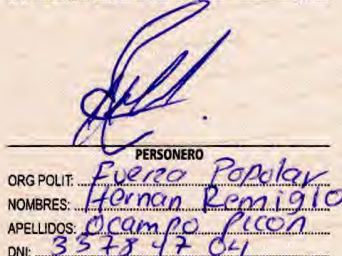 PERSONERO
ORG POLIT: Fuerza Popolar
NOMBRES: Hernan Remigio
APELLIDOS: Ocampo Picon
DNI: 33784704